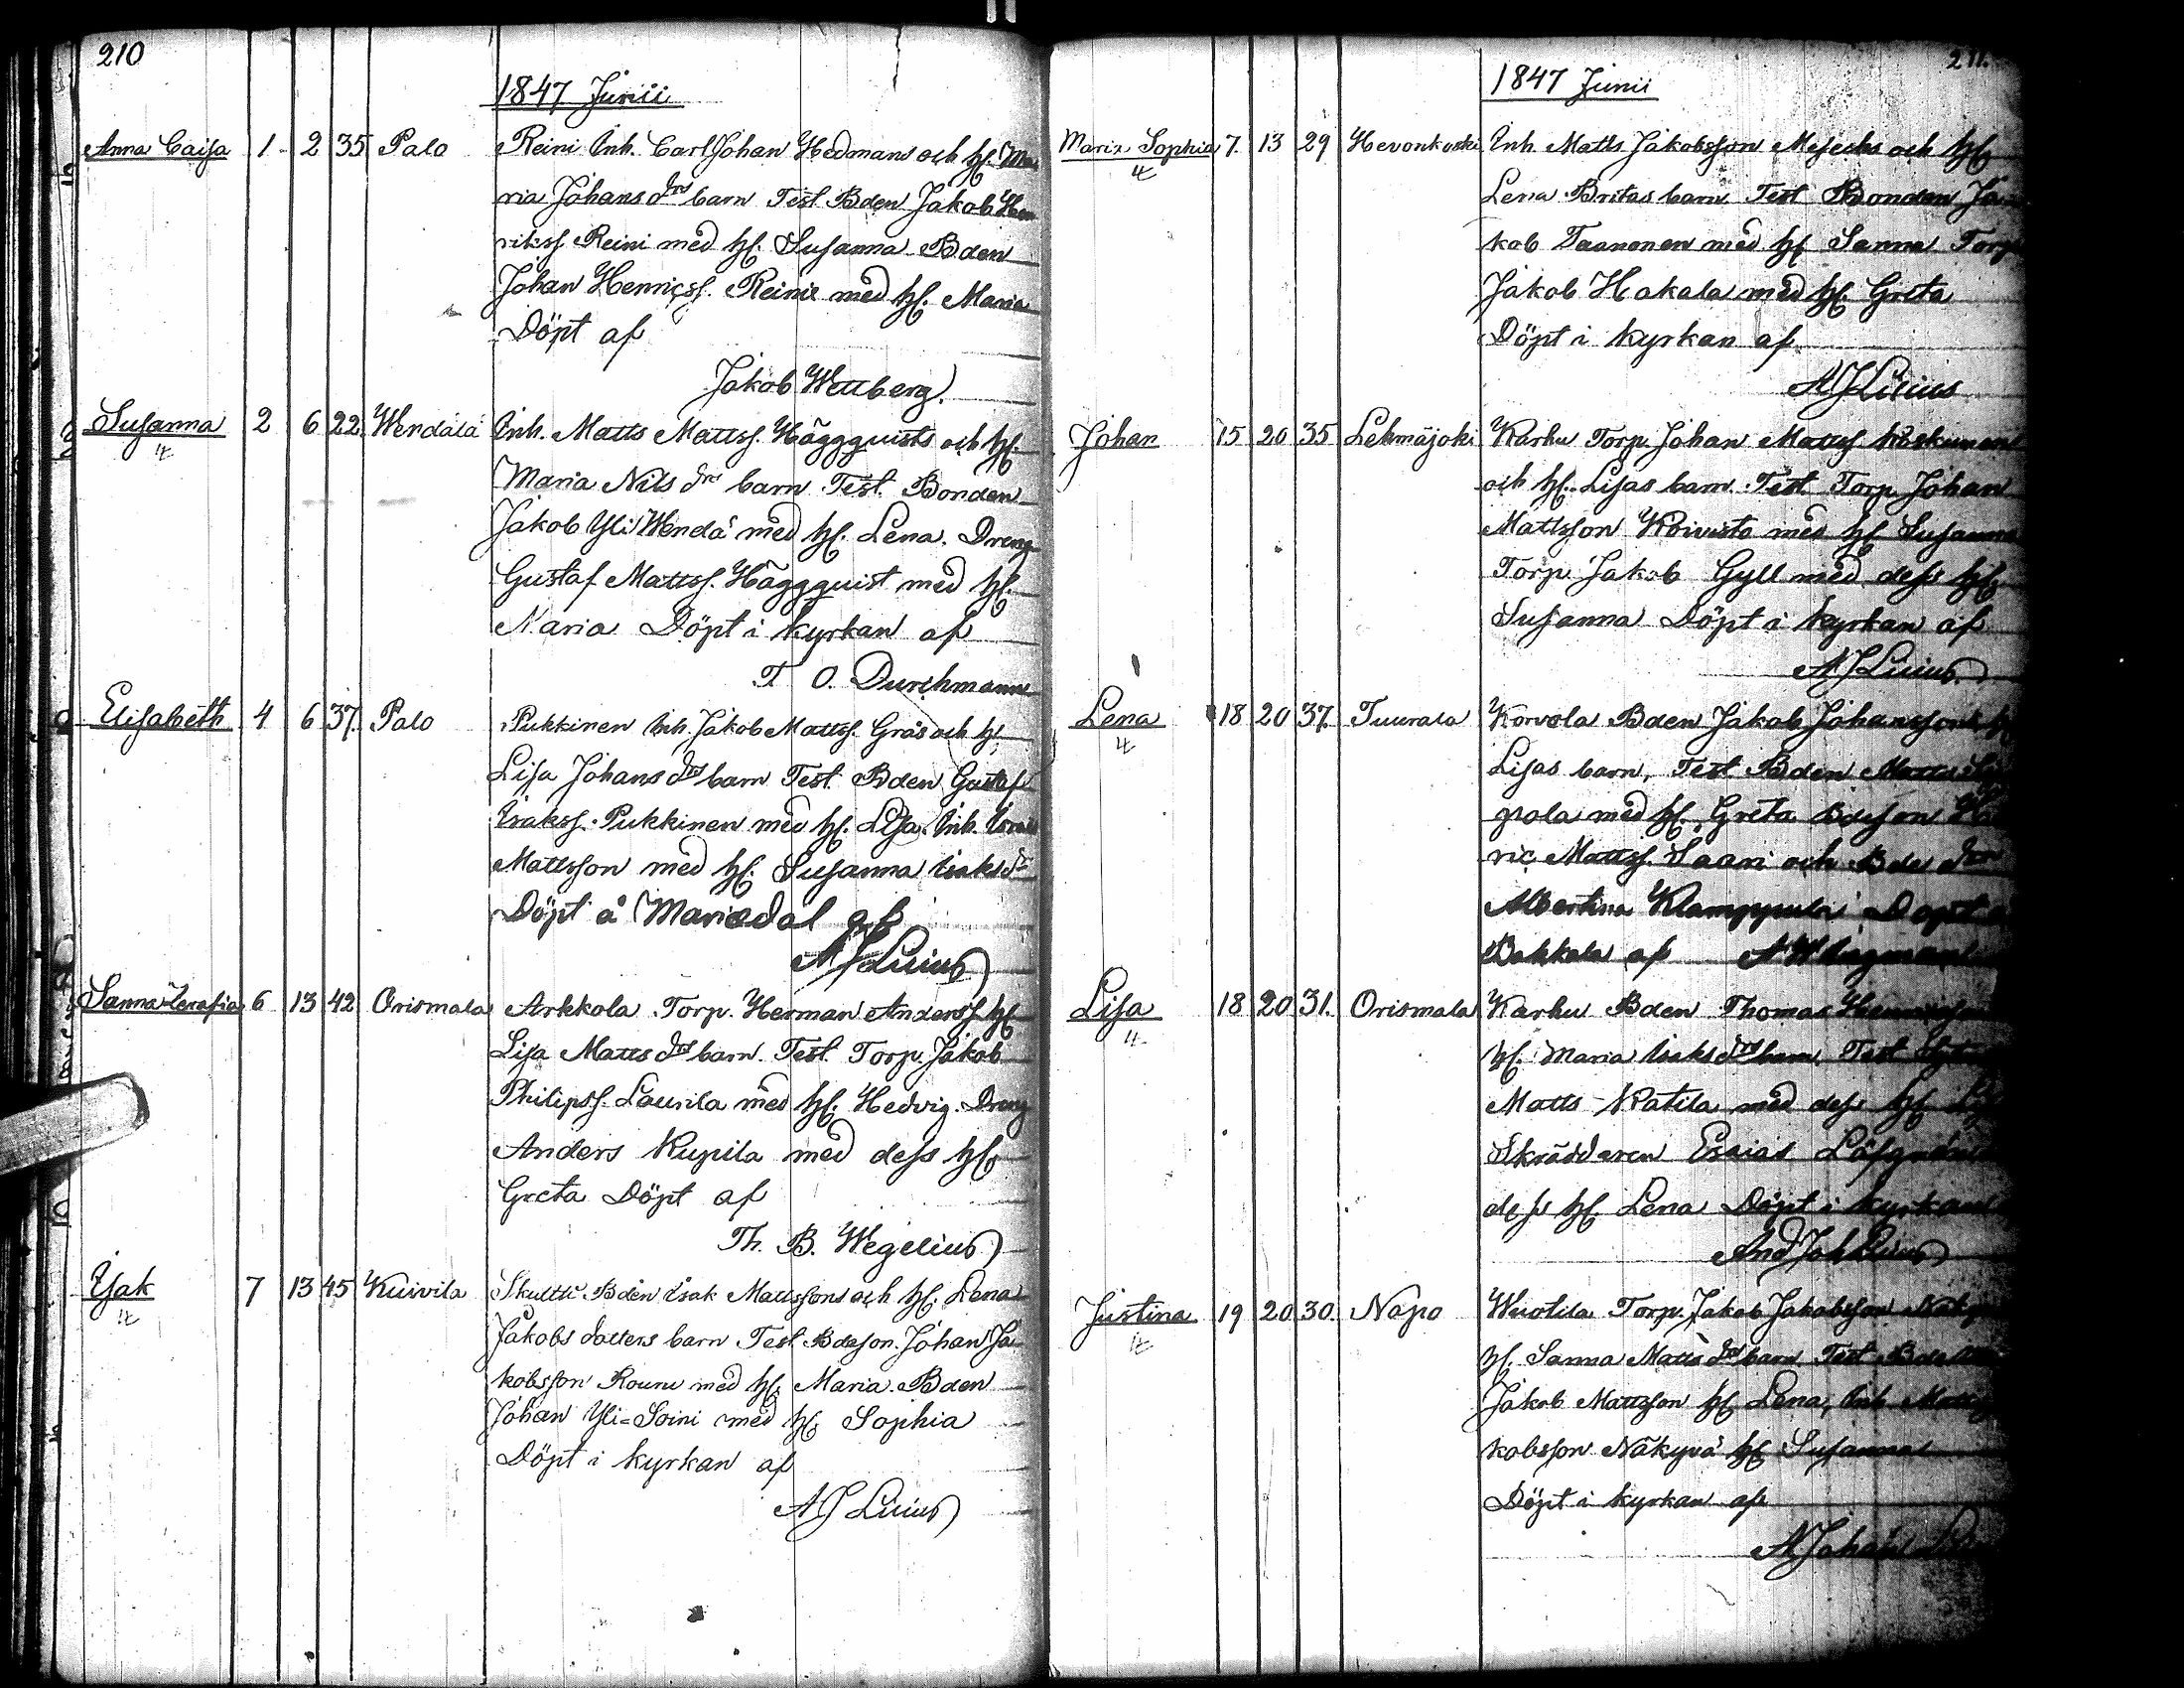 210
1847 Junii
Anna Caisa 1 2 35 Palo Reini Inh. Carl Johan Hedmans och hf. Ma
ria Johans drs barn Test. Bden Jakob Hen
rikss. Reini med hf. Susanna Bden
Johan Henricss. Reini med hf. Maria
Döpt af
Jakob Wettberg.
Susanna 2 6 22. Wendälä Inh. Matts Mattss. Häggquists och hf.
4
Maria Nils drs barn Test. Bonden
Jakob Yli Wendä med hf. Lena. Dreng
Gustaf Mattss. Häggquist med hf.
Maria Döpt i kyrkan af
T O. Durchmann
Elisabeth 4 6 37. Palo Pukkinen Inh. Jakob Mattss. Gräs och hf
Lisa Johans drs barn Test. Bden Gustaf
Isakss. Pukkinen med hf. Lisa, Inh.
Mattsson med hf. Susanna Isaks dr
Döpt å Mariedal af
A J Luius
Sanna Serafia 6 13 42 Orismala Arkkola Torp. Herman Anderss. hf
Lisa Matts drs barn. Test. Torp. Jakob
Philipss. Laurila med hf. Hedvig. Dreng
Anders Kupila med dess hf.
Greta Döpt af
Th. B. Wegelius
Isak 7 13 45 Kuivila Skutti Bden Isak Mattssons och hf. Lena
4
Jakobs dotters barn Test. Bdeson. Johan Ja
kobsson Rounu med hf. Maria. Bden
Johan Yli=Soini med hf. Sophia
Döpt i kyrkan af
A J Luius
211.
1847 Junii
Maria Sophia 7. 13 29 Hevonkoski Inh. Matts Jakobsson och hf
4
Lena Britas barn Test Bonden Ja
kob Taanonen med hf Sanna Torp
Jakob Hakala med hf. Greta
Döpt i kyrkan af
A J Luius
Johan 15 20 35 Lehmäjoki Karhu Torp. Johan Mattss Koskunen
och hf. Lisas barn. Test. Torp Johan
Mattsson Koivisto med hf Susanna
Torp. Jakob Gyll med dess hf.
Susanna Döpt i kyrkan af
A J Luius
Lena 18 20 37. Tuurala Korvola Bden Jakob Johanssons
4
Lisas barn, Test Bden Matts
pola med hf. Greta Bdeson
ric Mattss. Saari och Bde
Albertina Klamppula Döpt
Bakkala af
Lisa 18 20 31. Orismala Karhu Bden Thomas
4
hf. Maria Isaks drs barn, Test
Matts Katila med dess hf
Skräddaren Esaias
dess hf. Lena Döpt i kyrkan
And Joh Luius
Justina 19 20 30. Napo Wuotila Torp. Jakob Jakobsson
4
hf. Sanna Matts drs barn Test Bde
Jakob Mattsson hf Lena, Inh Matts
kobsson Näkyvä hf Susanna
Döpt i kyrkan af
A Johan